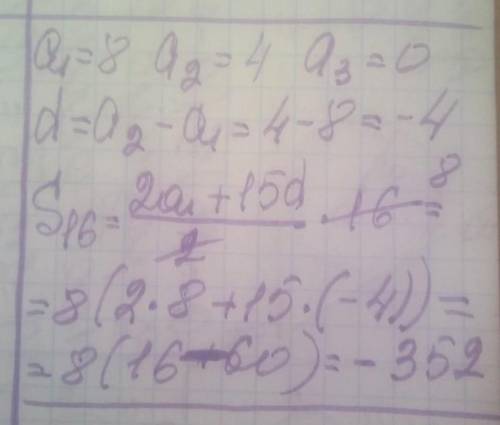 a₁=8 a₂=4 a₃=0
d=a₂-a₁=4-8=-4
S₁₆=(2a₁+15d)/2·16=⁸
=8(2·8+15·(-4))=
=8(16-60)=-352